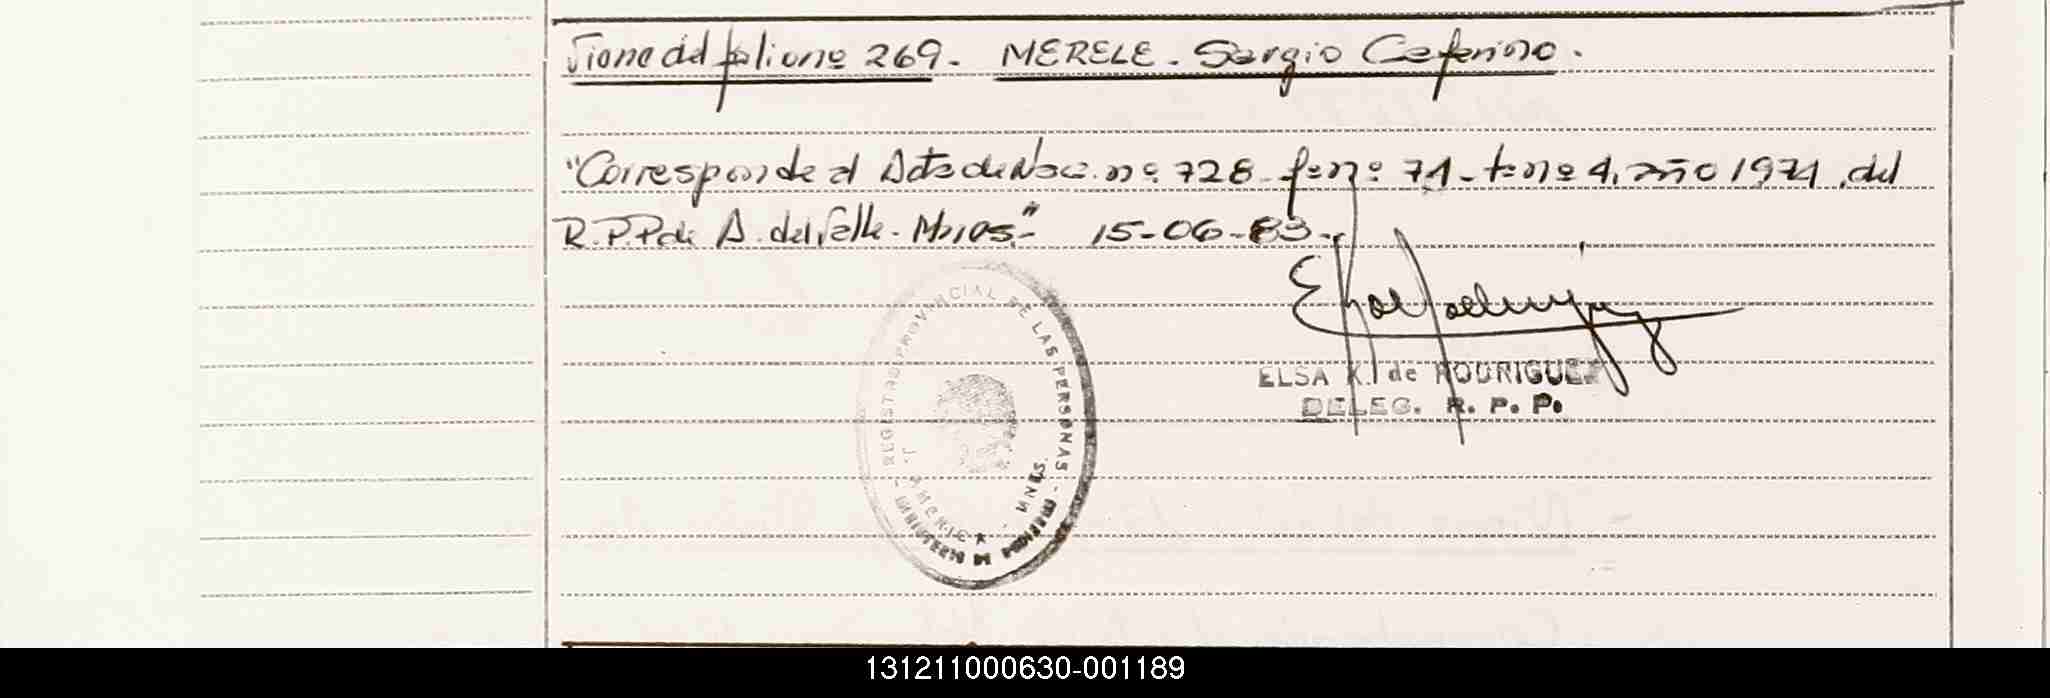 Viene del folio nº 269. MERELE. Sergio Ceferino.
"Corresponde al Acta de Nac. nº 728 fº nº 71 - tº nº 4, año 1971, del
R.P.P. de A. del Valle. Mnes." 15-06-83.
REGISTRO PROVINCIAL DE LAS PERSONAS - MINISTERIO DE GOBIERNO -
J. AMERICA - MNES.
ELSA K. de RODRIGUEZ
DELEG. R. P. P.
131211000630-001189